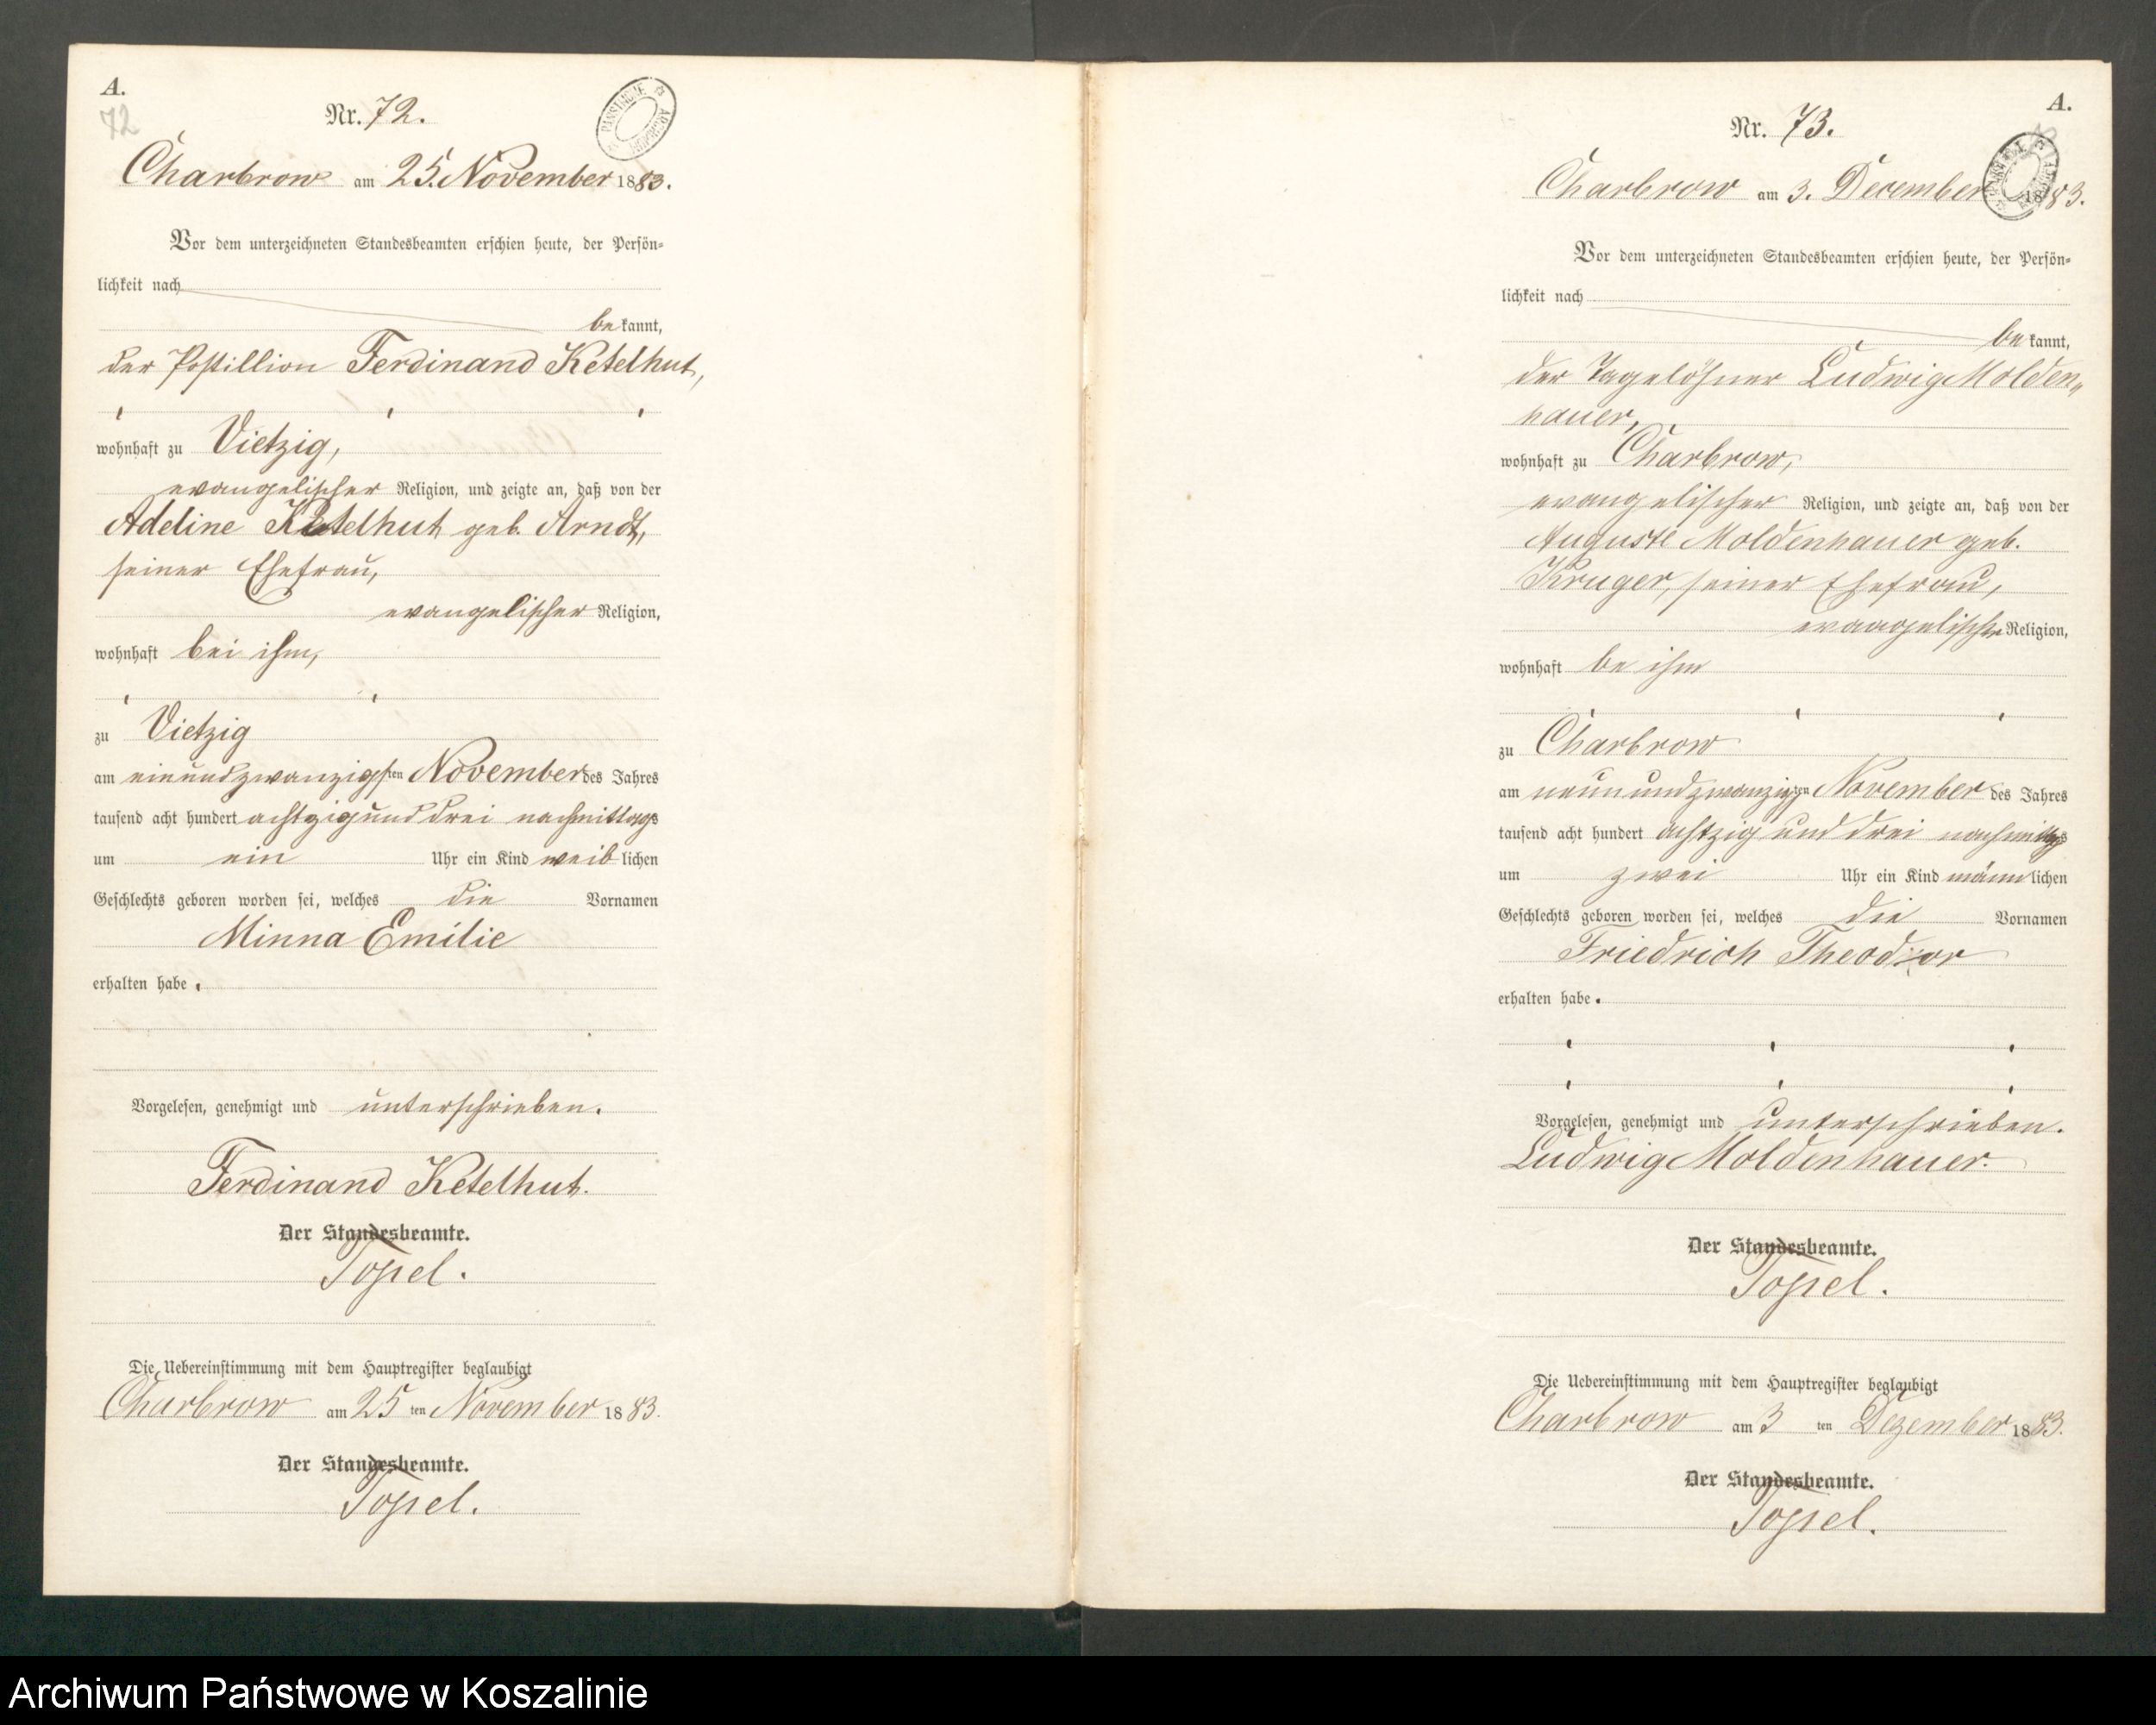 A.
72
Nr. 72.
Charbrow am 25. November 1883.
Vor dem unterzeichneten Standesbeamten erschien heute, der Persön-
lichkeit nach
bekannt,
der Postillion Ferdinand Ketelhut,
wohnhaft zu Vietzig,
evangelischer Religion, und zeigte an, daß von der
Adeline Ketelhut geb. Arndt,
seiner Ehefrau,
evangelischer Religion,
wohnhaft bei ihm,
zu Vietzig
am einundzwanzigsten November des Jahres
tausend acht hundert achtzig und drei nachmittags
um ein Uhr ein Kind weiblichen
Geschlechts geboren worden sei, welches die Vornamen
Minna Emilie
erhalten habe.
Vorgelesen, genehmigt und unterschrieben.
Ferdinand Ketelhut.
Der Standesbeamte.
Topel.
Die Uebereinstimmung mit dem Hauptregister beglaubigt
Charbrow am 25 ten November 1883.
Der Standesbeamte.
Topel.
A.
Nr. 73.
Charbrow am 3. December 1883.
Vor dem unterzeichneten Standesbeamten erschien heute, der Persön-
lichkeit nach
bekannt,
der Tagelöhner Ludwig Molden„
hauer,
wohnhaft zu Charbrow,
evangelischer Religion, und zeigte an, daß von der
Auguste Moldenhauer geb.
Kruger, seiner Ehefrau,
evangelischer Religion,
wohnhaft be ihm
zu Charbrow
am neunundzwanzigsten November des Jahres
tausend acht hundert achtzig und drei nachmittags
um zwei Uhr ein Kind männlichen
Geschlechts geboren worden sei, welches die Vornamen
Friedrich Theodor
erhalten habe.
Vorgelesen, genehmigt und unterschrieben.
Ludwig Moldenhauer.
Der Standesbeamte.
Topel.
Die Uebereinstimmung mit dem Hauptregister beglaubigt
Charbrow am 3 ten Dezember 1883.
Der Standesbeamte.
Topel.
Archiwum Państwowe w Koszalinie